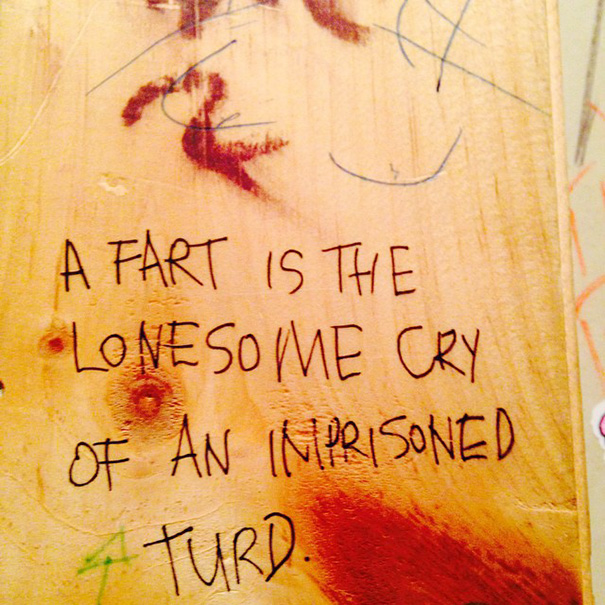 A FART IS THE
LONESOME CRY
OF AN IMPRISONED
TURD.